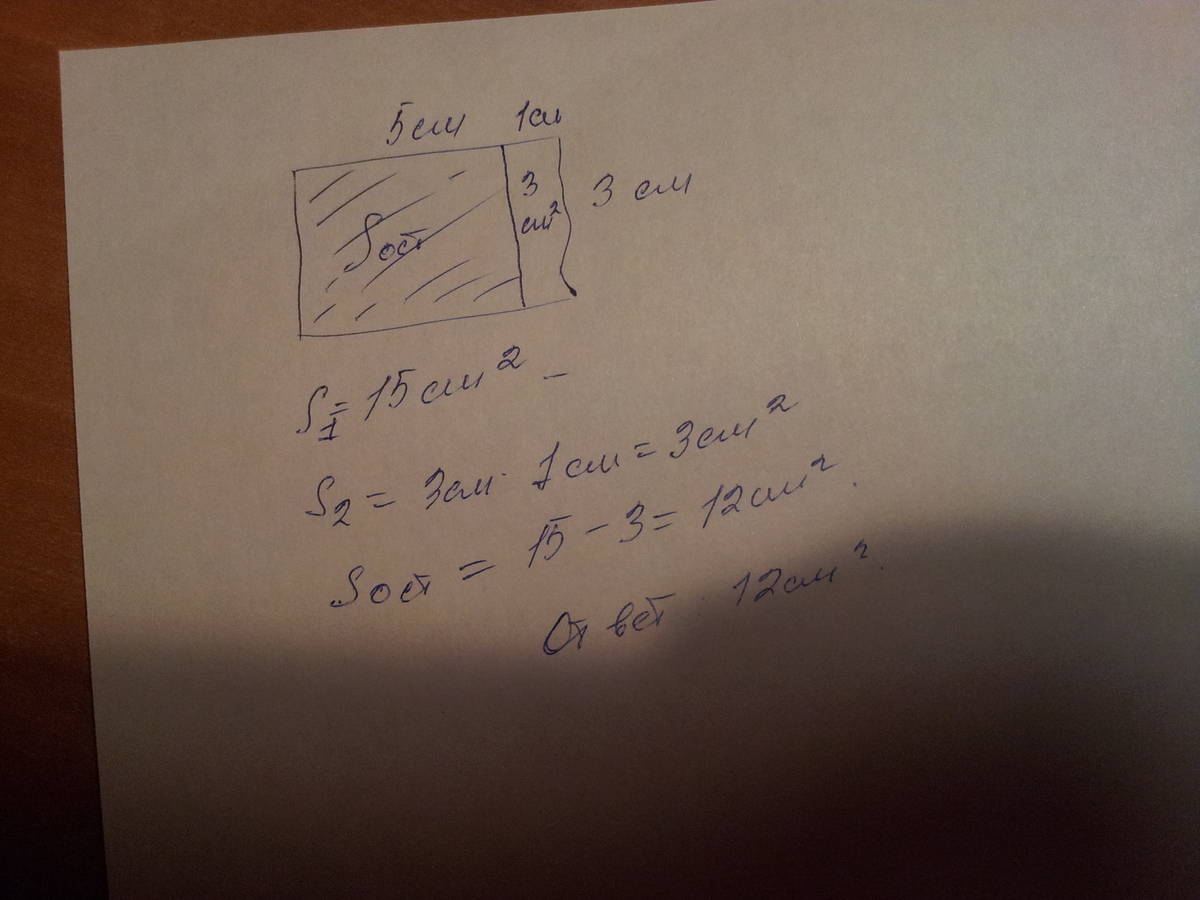 5см 1см
3 см² 3 см
Sост
S₁ = 15 см² –
S₂ = 3см · 1см = 3см²
Sост = 15 – 3 = 12см².
Ответ: 12см².